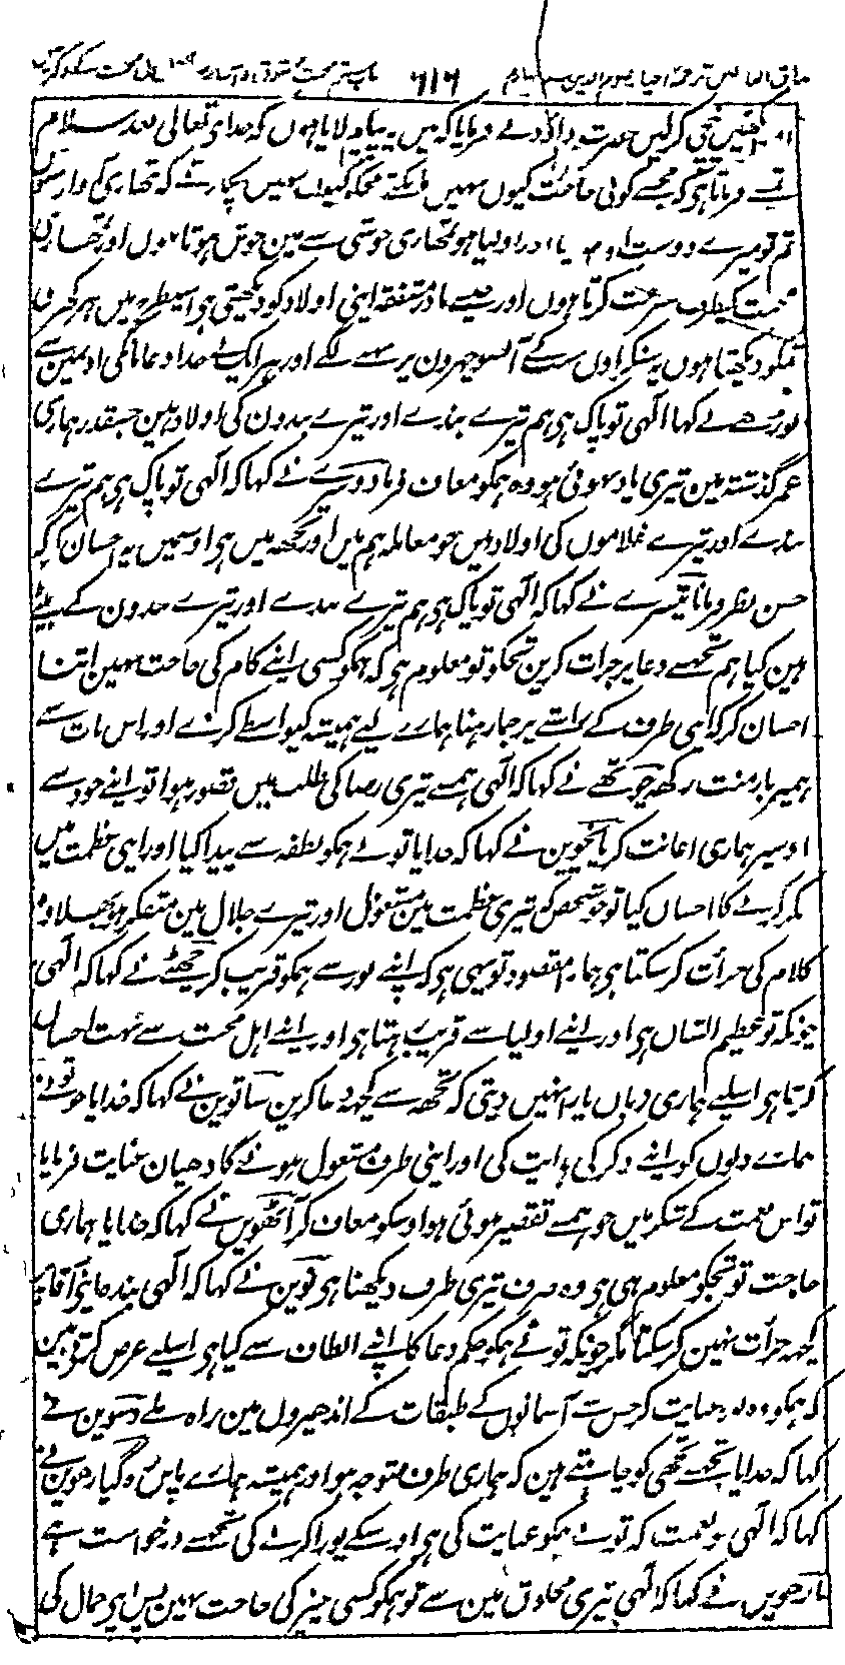 مذاق العارفین ترجمہ احیاء علوم الدین جلد چہارم ۶۱۶ باب ششم محبت شوق
نیچی کرلیں حضرت داؤد نے فرمایا کہ میں یہ پیام لایا ہوں کہ خدای تعالی بعد سلام
تمسے فرماتا ہی کہ مجھسے کوئی حاجت کیوں نہیں مانگتے مجھکو کیوں نہیں پکارتے کہ تمھاری آواز سنوں
تم تو میرے دوست اور اولیا ہو تمھاری خوشی سے مین خوش ہوتا ہوں اور تمھاری
محبت کیطرف سرعت کرتا ہوں اور جیسے مادر مشفقہ اپنی اولاد کو دیکھتی ہی اسیطرح میں ہر گھڑی
تمکو دیکھتا ہوں یہ سنکر اون سب کے آنسو چہرون پر بہنے لگے اور ہر ایک نے جدا دعا مانگی اونمین سے
بوڑھے نے کہا الٰہی تو پاک ہی ہم تیرے بندے اور تیرے بندون کی اولاد ہین جسقدر ہماری
عمر گذشتہ مین تیری یاد نہوئی ہو وہ ہمکو معاف فرما دوسرے نے کہا کہ الٰہی تو پاک ہی ہم تیرے
بندے اور تیرے غلاموں کی اولاد ہیں جو معاملہ ہم میں اور تجھ میں ہی اوسمیں یہ احسان کر کہ
حسن نظر فرمانا تیسرے نے کہا کہ الٰہی تو پاک ہی ہم تیرے بندے اور تیرے بندون کے بیٹے
ہین کیا ہم تجھسے دعا پر جرات کرین تجکو تو معلوم ہی کہ ہمکو کسی اپنے کام کی حاجت نہین اتنا
احسان کر کہ اپنی طرف کے راستے پر جما رہنا ہمارے لیے ہمیشہ کیواسطے کردے اور اس بات سے
ہمپر بار منت رکھ چوتھے نے کہا کہ الٰہی ہمسے تیری رضا کی طلب میں قصور ہوا تو اپنے جود سے
اوسپر ہماری اعانت کر پانچوین نے کہا کہ خدایا تو نے ہمکو نطفہ سے پیدا کیا اور اپنی عظمت میں
فکر کرنے کا احسان کیا تو جو شخص کہ تیری عظمت مین مشغول اور تیرے جلال مین متفکر ہو بھلا وہ
کلام کی جرأت کرسکتا ہی ہمارا مقصود تو یہی ہی کہ اپنے نور سے ہمکو قریب کر چھٹے نے کہا کہ الٰہی
چونکہ تو عظیم الشان ہی اور اپنے اولیا سے قریب رہتا ہی اور اپنے اہل محبت سے بہت احسان
کرتا ہی اسلیے ہماری زبان یارا نہیں دیتی کہ تجھ سے کچھ دعا کرین ساتوین نے کہا کہ خدایا جو تونے
ہمارے دلوں کو اپنے ذکر کی ہدایت کی اور اپنی طرف مشغول ہونے کا دھیان عنایت فرمایا
تو اس نعمت کے شکر میں جو ہمسے تقصیر ہوئی ہو اوسکو معاف کر آٹھویں نے کہا کہ خدایا ہماری
حاجت تو تجکو معلوم ہی ہی وہ صرف تیری طرف دیکھنا ہی نوین نے کہا کہ الٰہی بندہ اپنے آقا پر
کچھ جرأت نہین کرسکتا مگر چونکہ تو نے ہمکو حکم دعا کا اپنے الطاف سے کیا ہی اسلیے عرض کرتے ہین
کہ ہمکو وہ نور عنایت کر جس سے آسمانوں کے طبقات کے اندھیروں مین راہ ملے دسوین نے
کہا کہ خدایا تجھسے تجھی کو چاہتے ہین کہ ہماری طرف متوجہ ہو اور ہمیشہ ہمارے پاس رہ گیارھوین نے
کہا کہ الٰہی جو نعمت کہ تونے ہمکو عنایت کی ہی اوسکے پورا کرنے کی تجھسے درخواست ہے
بارھویں نے کہا کہ الٰہی تیری مخلوق مین سے تو ہمکو کسی چیز کی حاجت نہین پس اپنے جمال کی